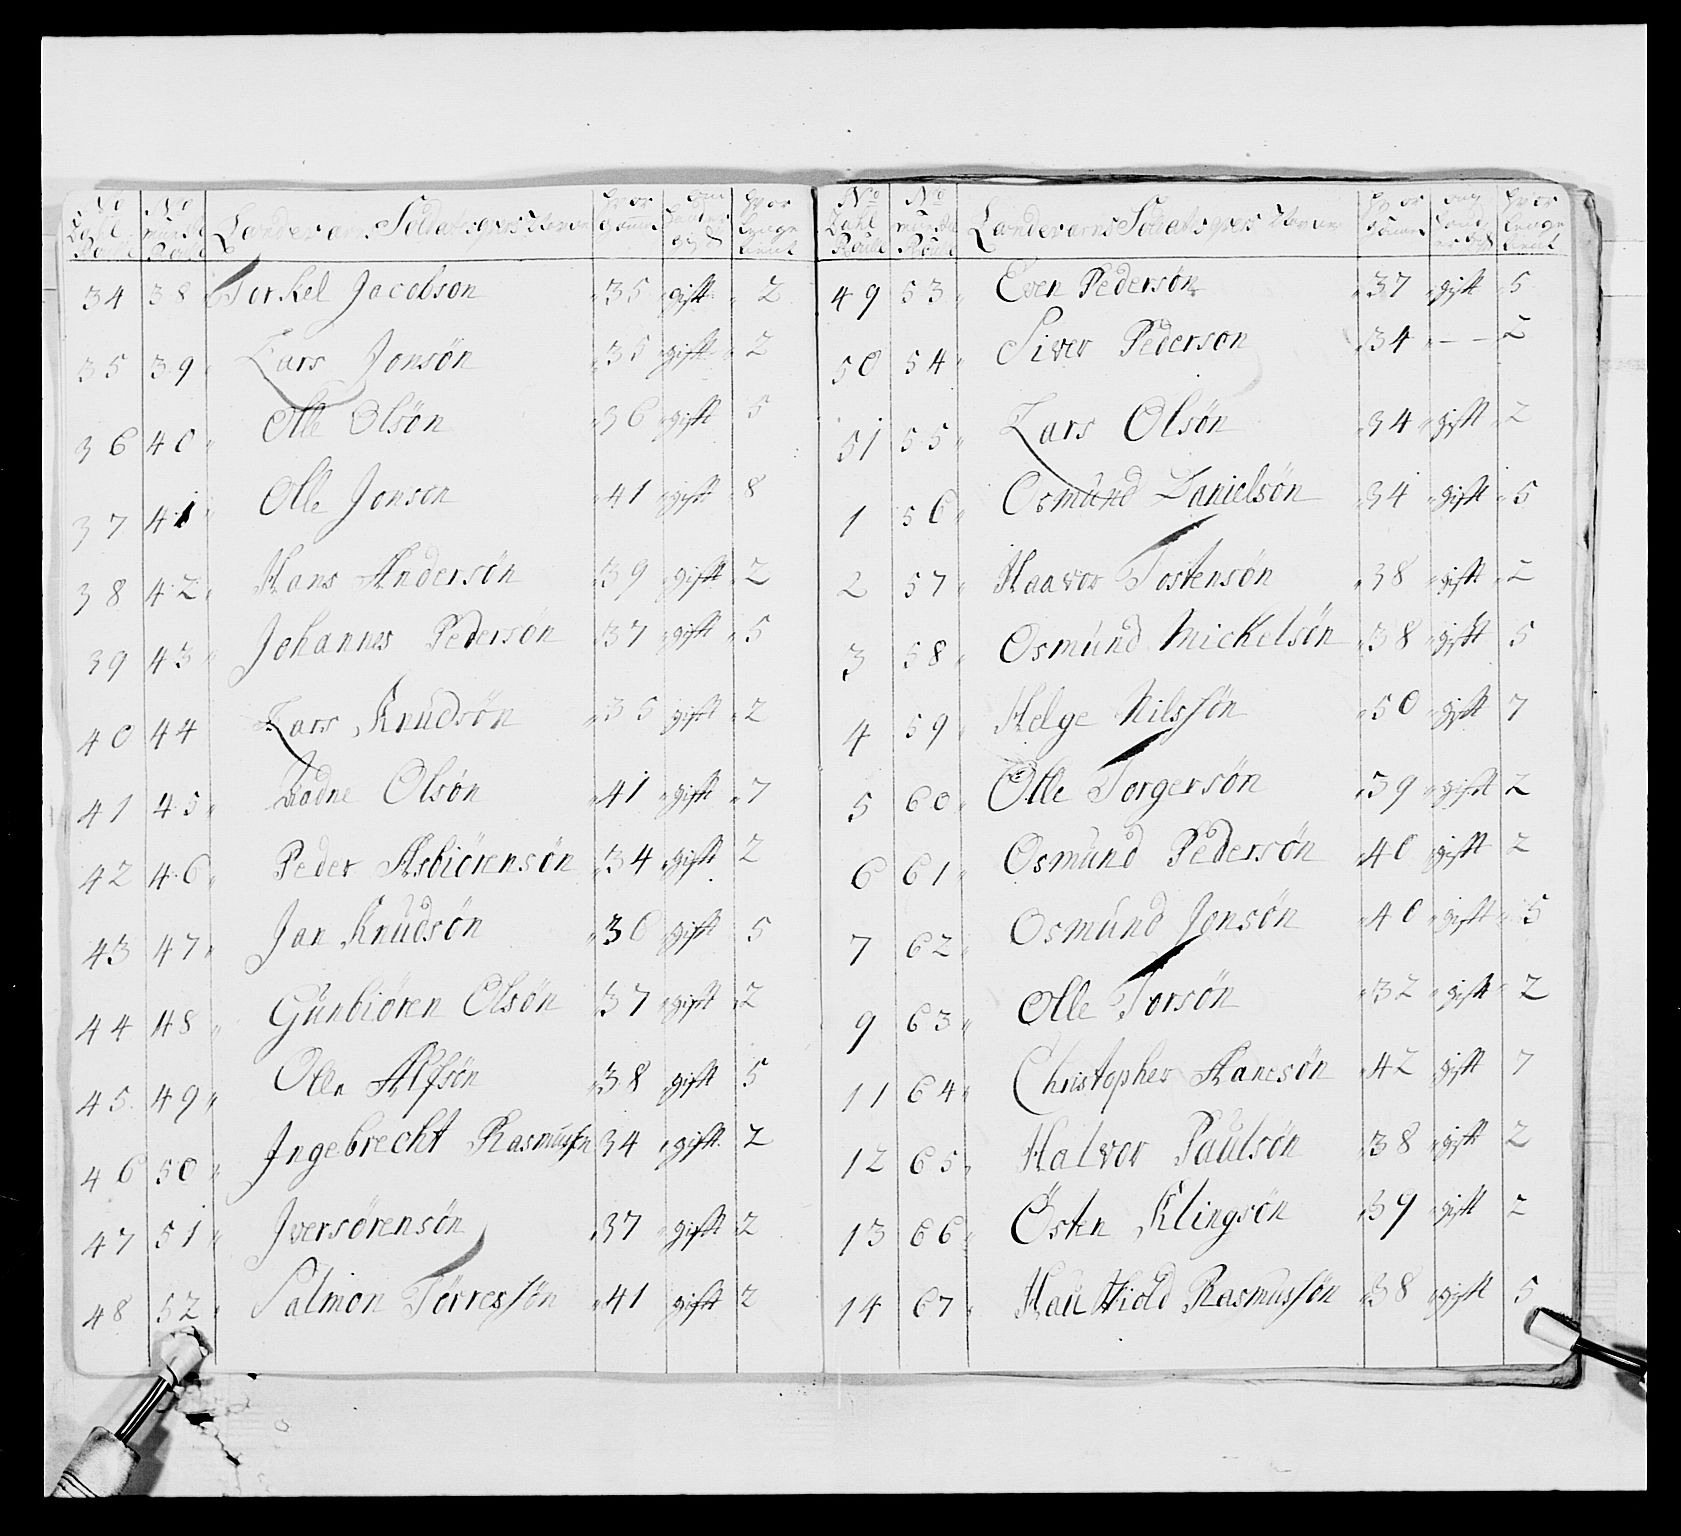 No No Landevarns Soldaternes Navne hvor om hvor
34 38 Torkel Jacobson 35 gift 2
35 39 Lars Jonsön 35 gift 2
36 40 Olle Olsön 36 gift 5
37 41 Olle Jonson 41 gift 8
38 42 Hans Andersön 39 gift 2
39 43 Johannes Pedersön 37 gift 5
40 44 Lars Knudsön 35 gift 2
41 45 Ladne Olsön 41 gift 7
42 46 Peder Asbiörensön 34 gift 2
43 47 Jan Knudsön 36 gift 5
44 48 Gunbiören Olsön 37 gift 2
45 49 Olle Alfsön 38 gift 5
46 50 Ingebrecht Rasmussen 34 gift 2
47 51 Iversörensön 37 gift 2
48 52 Salmon Törressön 41 gift 2
No No Landevarns Soldaternes Navne hvor om hvor
49 53 Even Pedersön 37 gift 5
50 54 Siver Pederson 34 - - 2
51 55 Lars Olsön 34 gift 2
1 56 Osmund Danielsön 34 gift 5
2 57 Haavor Tostensön 38 gift 2
3 58 Osmund Mickelsön 38 gift 5
4 59 Helge Nilssön 50 gift 7
5 60 Olle Torgersön 39 gift 2
6 61 Osmund Pedersön 40 gift 2
7 62 Osmund Jonsön 40 gift 5
9 63 Olle Torsön 32 gift 2
11 64 Christopher Hansön 42 gift 7
12 65 Halvor Paulsön 38 gift 2
13 66 Östen Klingsön 39 gift 2
14 67 Rasmussön 38 gift 5